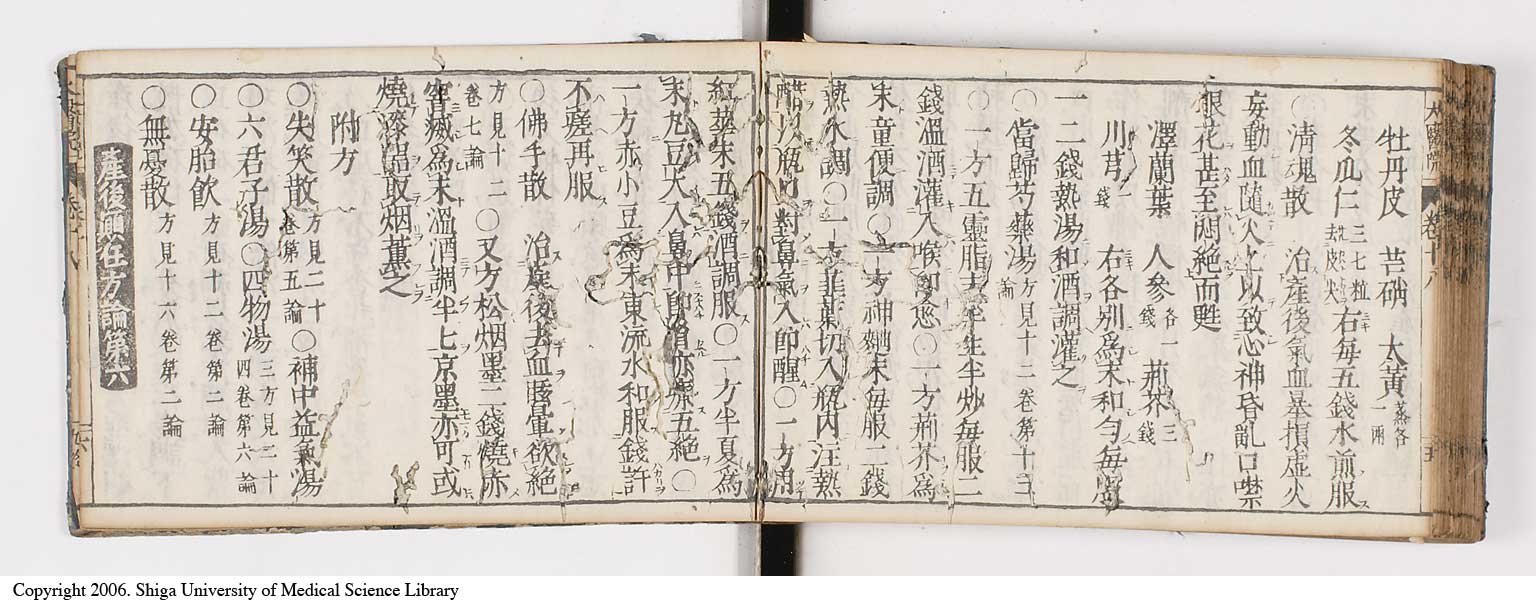 牡丹皮 芒硝 大黃蒸各一兩
冬瓜仁三七粒去皮尖右每五錢水煎服
○清魂散 治產後氣血暴損虛火
妄動血隨火上以致心神昏亂口噤
眼花甚至悶絕而甦
澤蘭葉 人參各一錢 荊芥三錢
川芎一錢 右各別爲末和勻每服
一二錢熱湯和酒調灌之
○當歸芍藥湯方見十二卷第十三論
○一方五靈脂半生半炒每服二
錢溫酒灌入喉卽愈○一方荊芥爲
末童便調○一方神麯末每服二錢
熱水調○一方韭葉切入瓶內注熱
醋以瓶口對鼻氣入卽醒○一方用
紅花末五錢酒調服○一方半夏爲
末丸豆大入鼻中卽省亦療五絕○
一方赤小豆爲末東流水和服錢許
不瘥再服
○佛手散 治產後去血眩暈欲絕
方見十二卷七論○又方松烟墨二錢燒赤
窨滅爲末溫酒調半七京墨亦可或
燒漆器取烟薰之
附方
○失笑散方見二十卷第五論○補中益氣湯
○六君子湯○四物湯三方見二十四卷第六論
○安胎飮方見十二卷第二論
○無憂散方見十六卷第二論
產後 方論第六
Copyright 2006. Shiga University of Medical Science Library